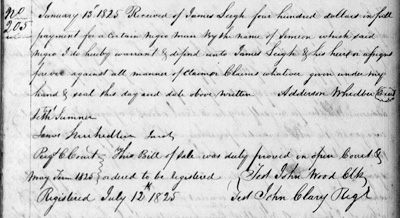 No
205
January 13th 1825 Received of James Leigh four hundred dollars in full
payment for a Certain Negro Man by the name of Simeon which said
Negro I do hereby warrant & defend unto James Leigh & his heirs or assigns
forever against all manner of Claim or Claims whatever given under my
hand & seal this day and date above written Adderson Whedbee Seal
Seth Sumner
James
Perqs County This Bill of Sale was duly proved in open Court &
May Term 1825 ordered to be registered Test John Wood Clk
Registered July 12th 1825 Test John Clary Regt